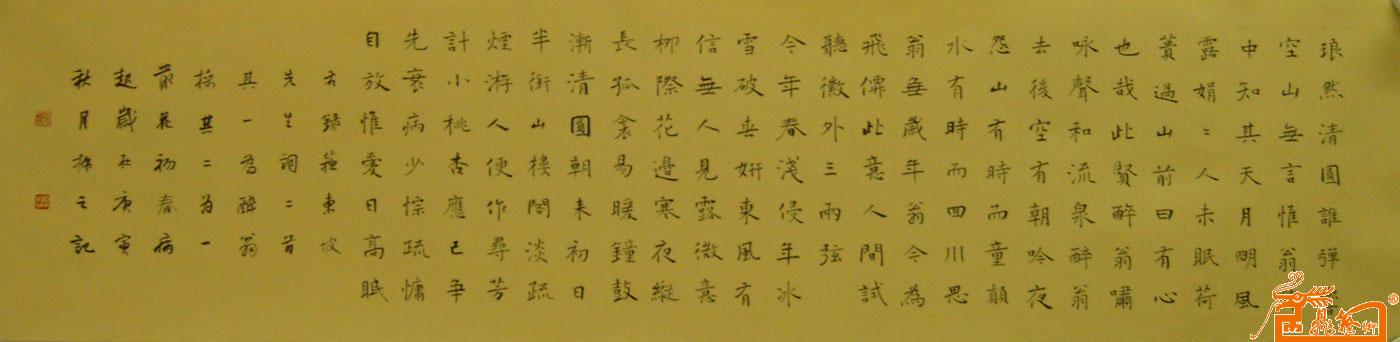 琅然清圓誰彈
空山無言惟翁
中知其天月明風
露娟〻人未眠荷
蕢過山前曰有心
也哉此賢醉翁嘯
咏聲和流泉醉翁
去後空有朝吟夜
怨山有時而童顛
水有時而四川思
翁無歲年翁今為
飛僊此意人間試
聽徽外三兩弦
今年春淺侵年冰
雪破春妍東風有
信無人見露微意
柳際花邊寒夜縱
長孤衾易暖鐘鼓
漸清圓朝來初日
半銜山樓閣淡疏
煙游人便作尋芳
計小桃杏應已爭
先衰病少悰疏慵
自放惟愛日高眠
右錄蘇東坡
先生詞二首
其一為醉翁
操其二為一
叢花初春病
起歲在庚寅
秋月之記